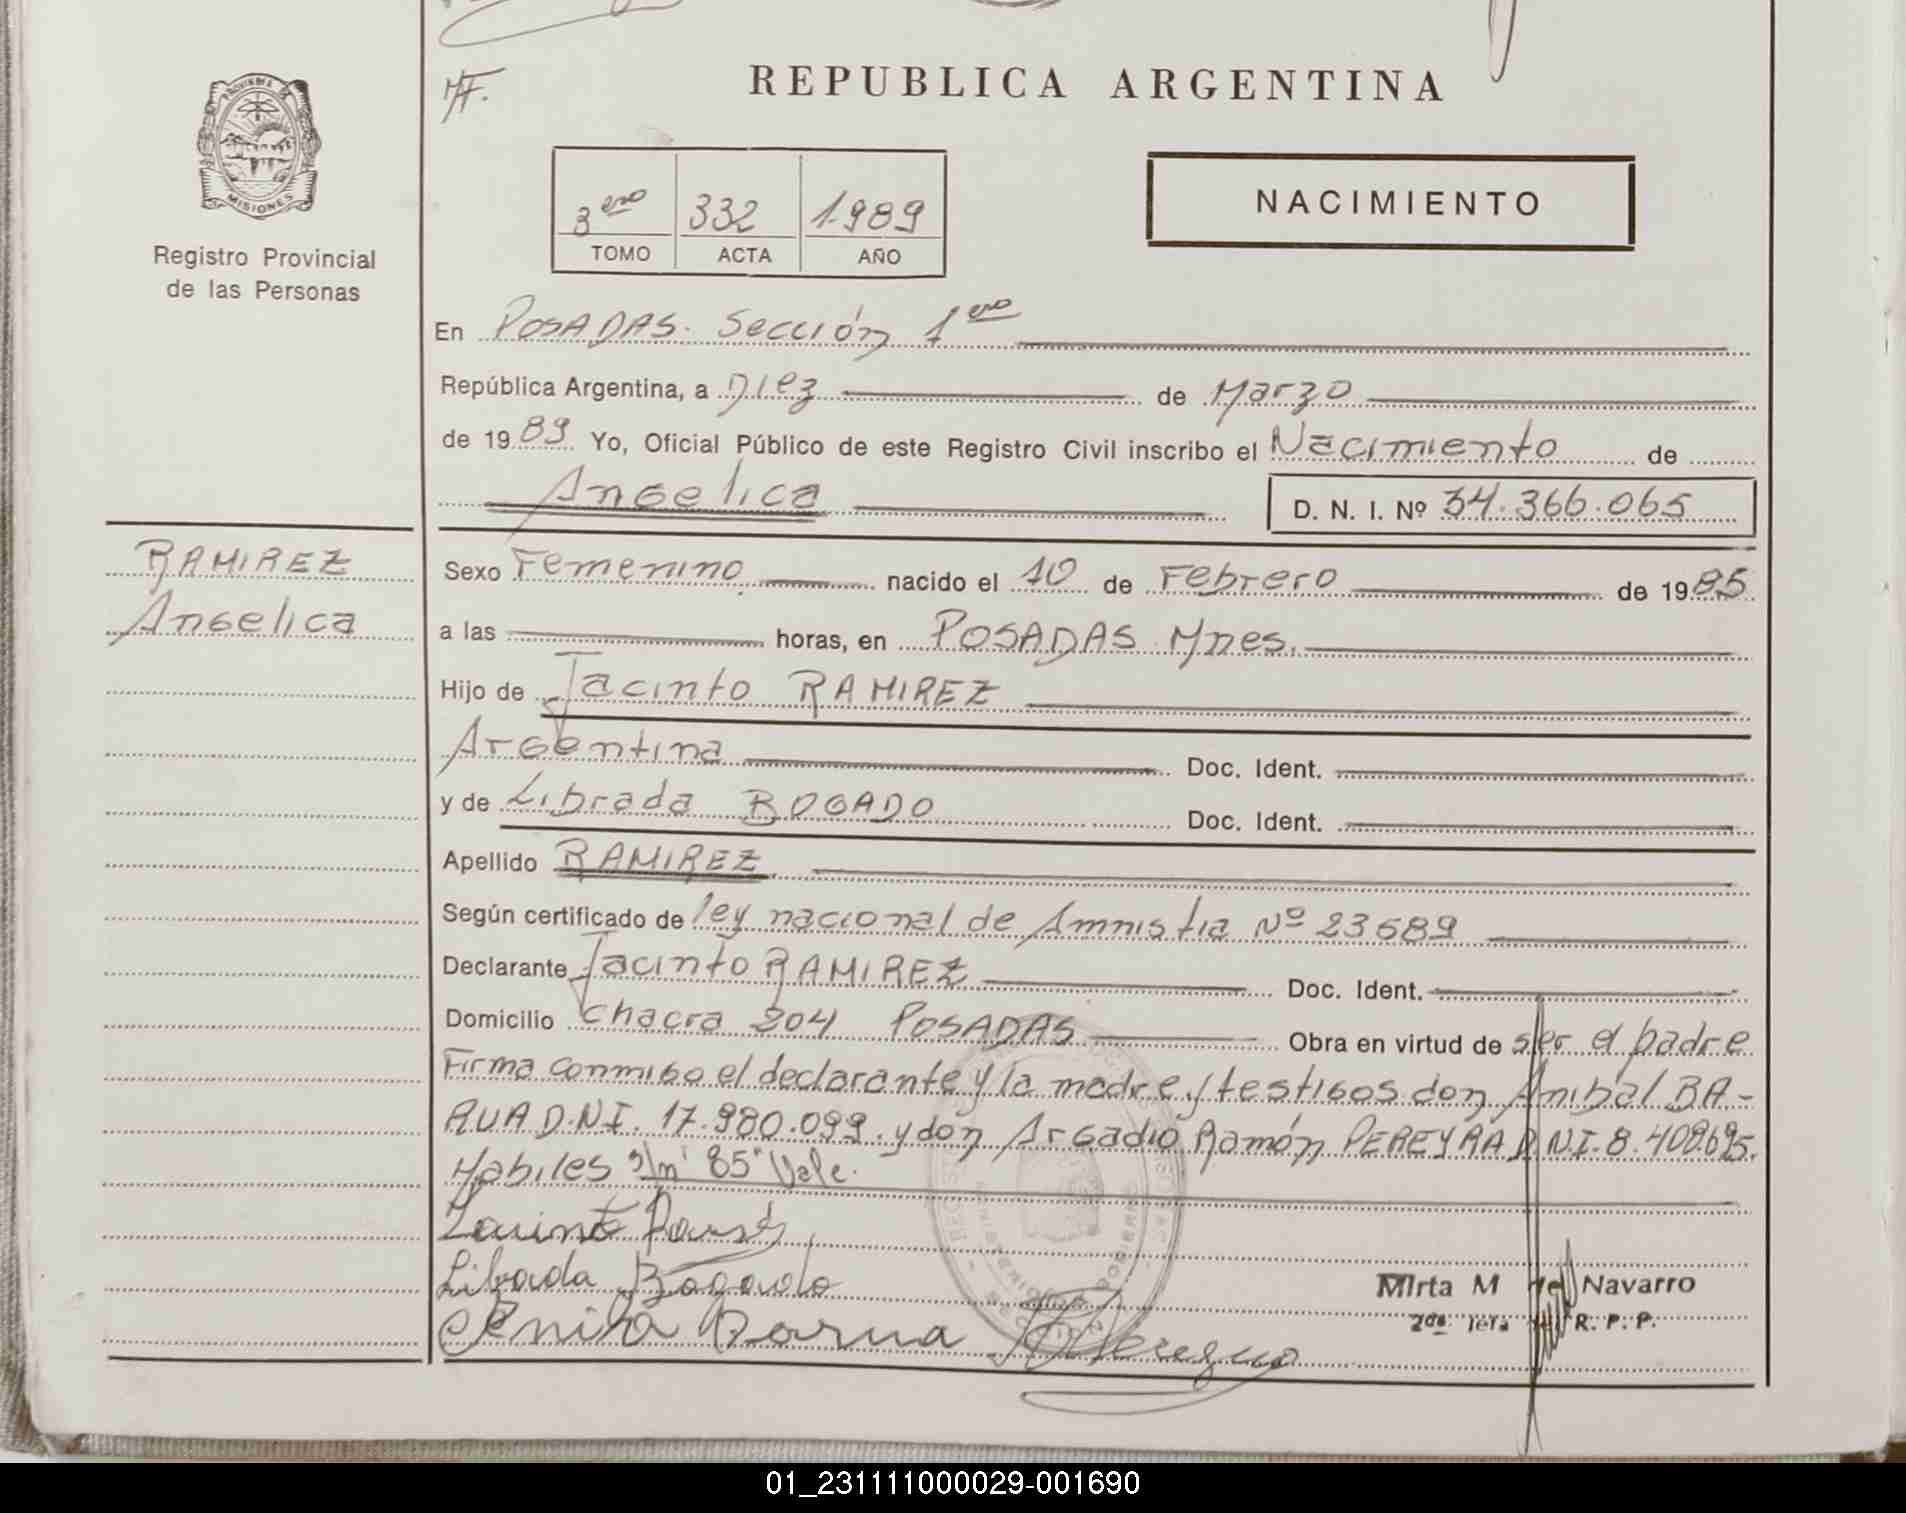 PROVINCIA DE
MISIONES
Registro Provincial
de las Personas
RAMIREZ
Angelica
REPUBLICA ARGENTINA
3ero 332 1.989
TOMO ACTA AÑO
NACIMIENTO
En POSADAS. Sección 1era
República Argentina, a Diez de Marzo
de 1989 Yo, Oficial Público de este Registro Civil inscribo el Nacimiento de
Angelica D. N. I. Nº 34.366.065
Sexo Femenino nacido el 10 de Febrero de 1985
a las horas, en POSADAS Mnes.
Hijo de Jacinto RAMIREZ
Argentina Doc. Ident.
y de Librada BOGADO Doc. Ident.
Apellido RAMIREZ
Según certificado de ley nacional de Amnistia Nº 23689
Declarante Jacinto RAMIREZ Doc. Ident.
Domicilio Chacra 204 POSADAS Obra en virtud de ser el padre
Firma conmigo el declarante y la madre y testigos don Anibal BA-
RUA D.N.I. 17.980.099. y don Argadio Ramón PEREYRA D.N.I. 8.408.695.
Habiles "85" Vale.
Librada Bogado
Barua
Mirta M de Navarro
2da R. P. P.
01_231111000029-001690